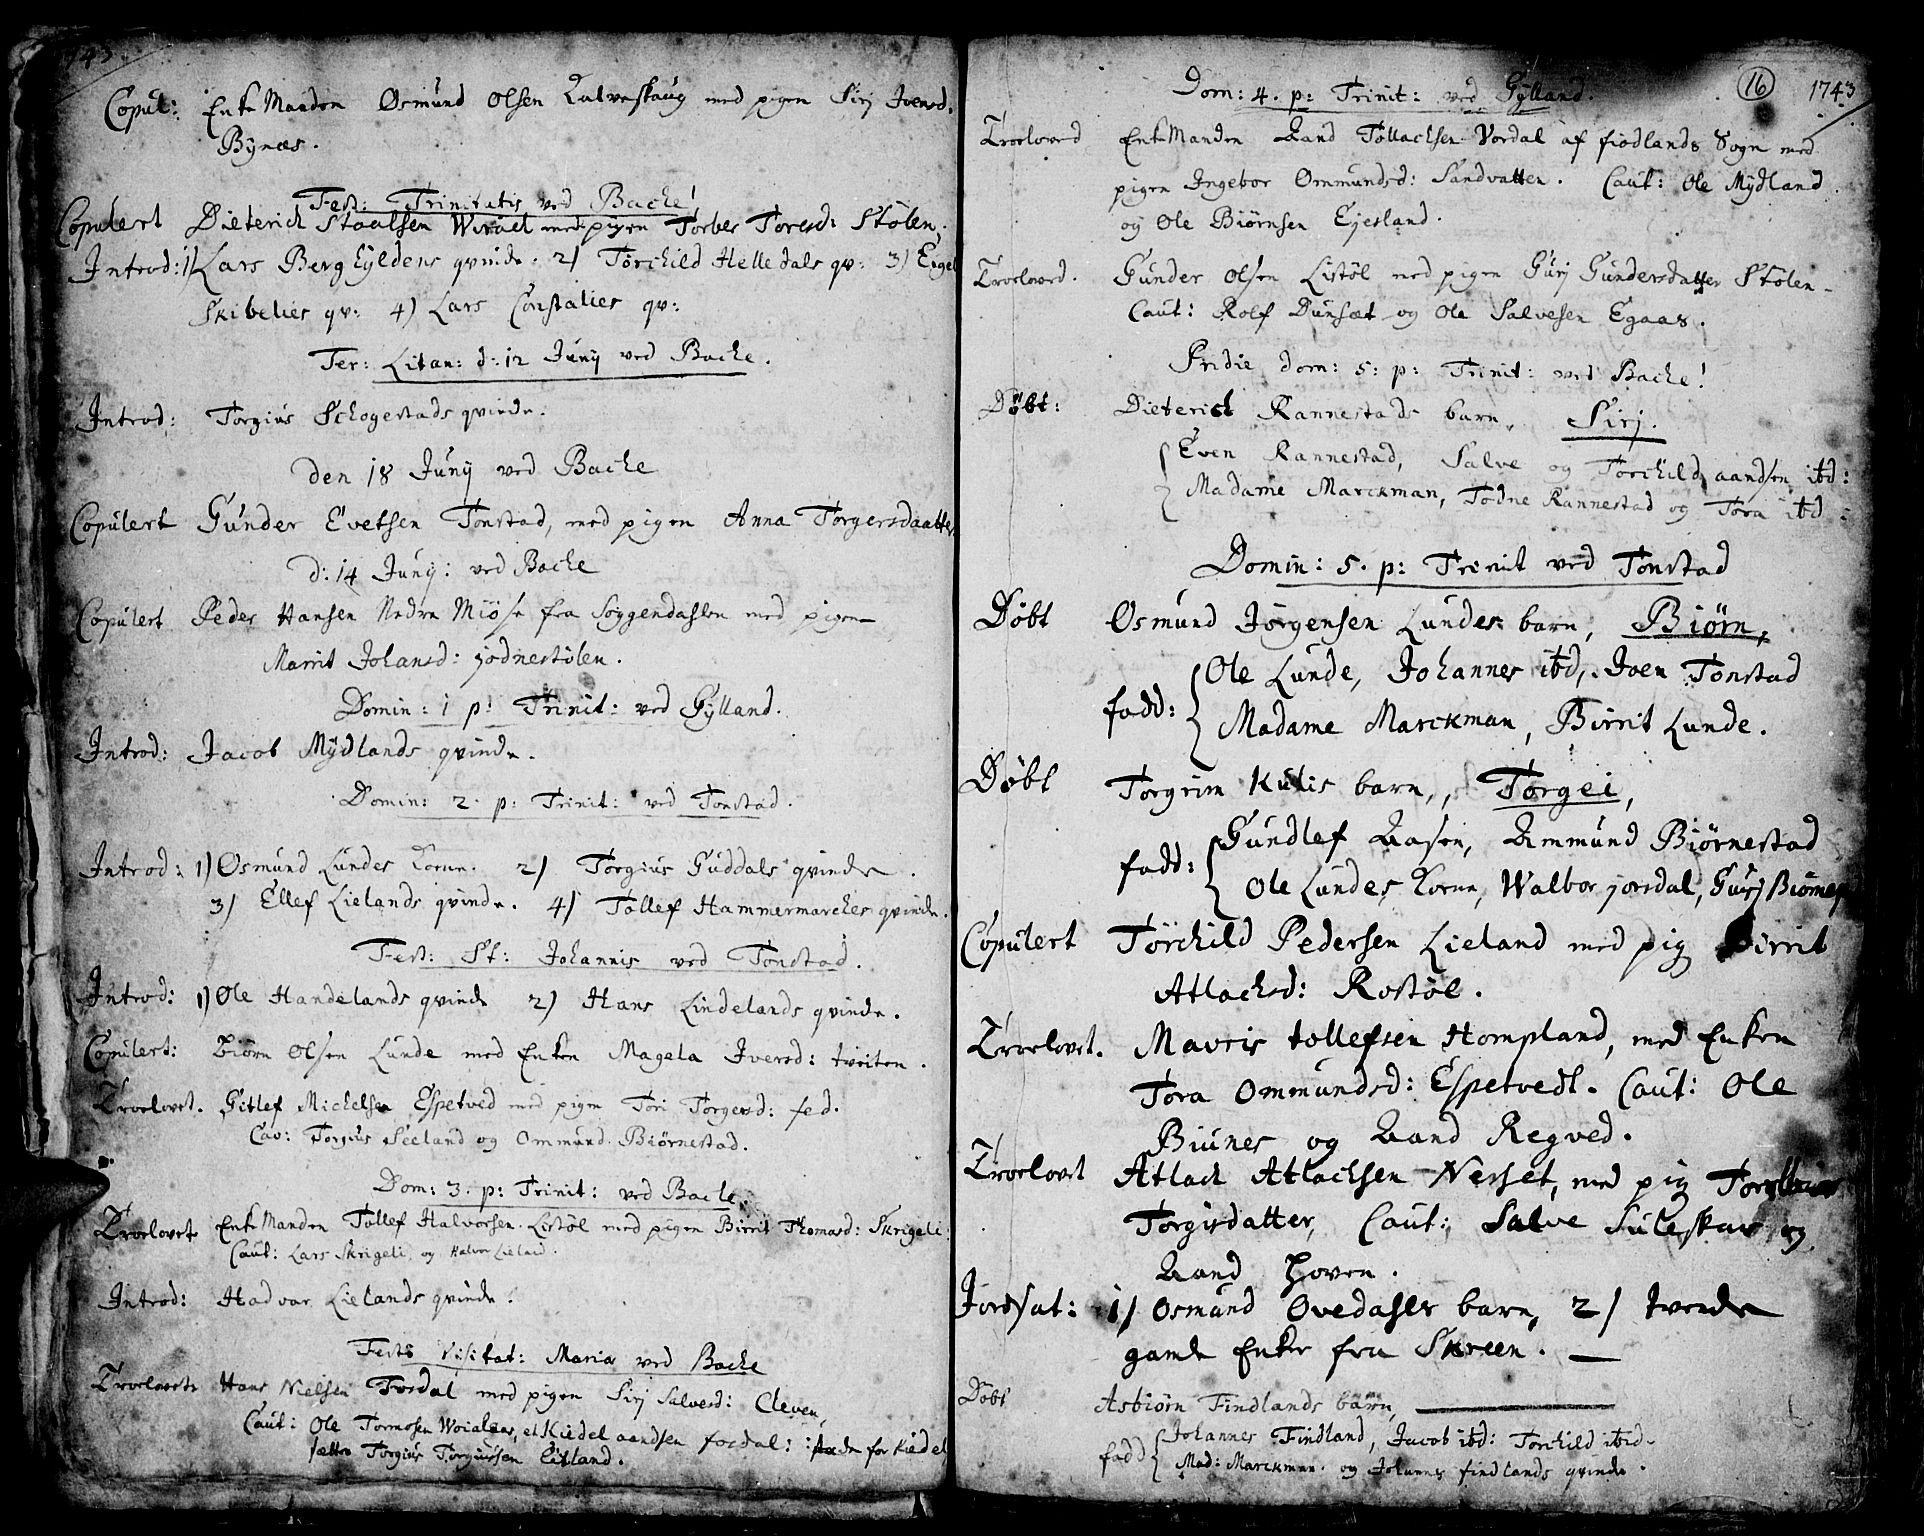 1743
Copul: Enke Manden Osmund Olsen Kalveskaug med pigen Sirj Joensd:
Bynæs.
Fest: Trinitatis ved Backe!
Copulert Dieterich Staalsen med pigen Torber Toresd: Stølen,
Introd: 1) Lars Berghyldens qvinde. 2) Torchild Helledals qv: 3) Engel
Skibelies qv: 4) Lars Constalies qv:
Ter: Litan: d: 12 Junij ved Backe.
Introd: Torgius Schogestads qvinde.
den 18 Junij ved Backe
Copulert Gunder Evetsen Tonstad, med pigen Anna Torgersdaatter
d: 14 Junij: ved Backe
Copulert Peder Hansen Nedre Miøse fra Soggendahlen med pigen
Marrit Johansd: jødnestølen.
Domin: 1 p: Trinit: ved Gylland.
Introd: Jacob Mydlands qvinde.
Domin: 2. p: Trinit: ved Tonstad.
Introd: 1) Osmund Lundes Kone. 2) Torgius Guddals qvinde.
3) Ellef Lielands qvinde. 4) Tollef Hammermarckes qvinde.
Fest: St: Johannis ved Tonstad.
Introd: 1) Ole Handelands qvinde 2) Hans Lindelands qvinde.
Copulert: Biørn Olsen Lunde med Enken Magela Iversd: tveiten.
Troelovet. Gitlef Michelsen Espetved med pigen Tori Torgersd: fed.
Cav: Torgius Seeland og Ommund Biørnestad.
Dom: 3. p: Trinit: ved Backe.
Troelovet Enke Manden Tollef Halvorsen Listøl med pigen Birrit Thomasd: Skrigeli:
Caut: Lars Skrigeli, og Halvor Lieland.
Introd: Hadvar Lielands qvinde.
Festo Visitat: Mariæ ved Backe
Troelovet Hans Nielsen Fosdal med pigen Sirj Salvesd: Cleven,
Caut: Ole Tormosen et Kiedel aandsen fosdal: for Kiedel
sætte Torgius Torgiussen Eitland.
Dom: 4. p: Trinit: ved Gylland.
16 1743
Troeloved Enke Manden Aand Tollachsen Vordal af fiodlands Sogn med
pigen Ingebor Ommundsd: Sandvatten. Caut: Ole Mydland
og Ole Biørnsen Ejesland.
Troeloved. Gunder Olsen Listøl med pigen Gurj Gundersdatter Stølen
Caut: Rolf Dunsæt og Ole Salvesen Egaas.
Pridie dom: 5: p: Trinit: ved Backe!
Døbt: Dieterich Rannestads barn, Sirj.
Even Rannestad, Salve og Torchild aandsen ibd:
Madame Marckman, Todne Rannestad og Tora ibd:
Domin: 5. p: Trinit ved Tonstad
Døbt Osmund Jørgensen Lundes barn, Biørn,
fadd: Ole Lunde, Johannes ibd, Joen Tonstad
Madame Marckman, Birrit Lunde.
Døbt Torgrim Kulis barn, Torgei,
fadd: Gundlef Aasen, Ammund Biørnestad
Ole Lundes Kone, Walbor josdal, Gurj Biørnest
Copulert Torchild Pedersen Lieland med pig Birrit
Atlachsd: Rostøl.
Troelovet. Mavris tollefsen Hompland, med Enken
Tora Ommundsd: Espetvedt. Caut: Ole
Biunes og Aand Regved.
Troelovet Atlach Atlachsen Nesset, med pig
Torgisdatter, Caut: Salve Suleskar og
Aand Hoven.
Jordsat: 1) Osmund Ovedahls barn, 2) tvende
gamle Enker fra Skreen.
Døbt Asbiørn Findlands barn,
fadd Johannes Findland, Jacob ibd: Torchild ibid.
Mad: Marckman. og Johannes findlands qvinde.